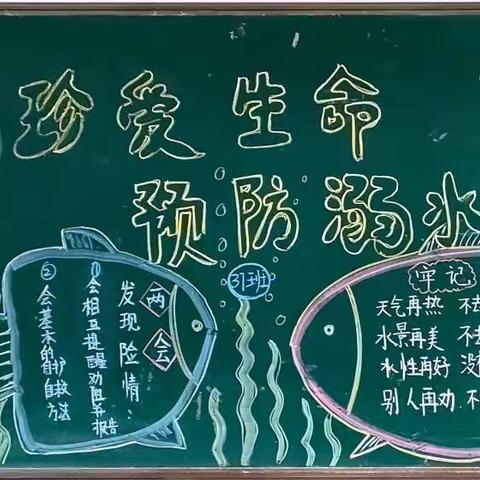 珍爱生命
预防溺水
37班
两会
发现险情:
①会相互提醒劝阻并报告
②会基本的自护
自救方法
牢记
天气再热 不去
水景再美 不去
水性再好 没
别人再劝 不